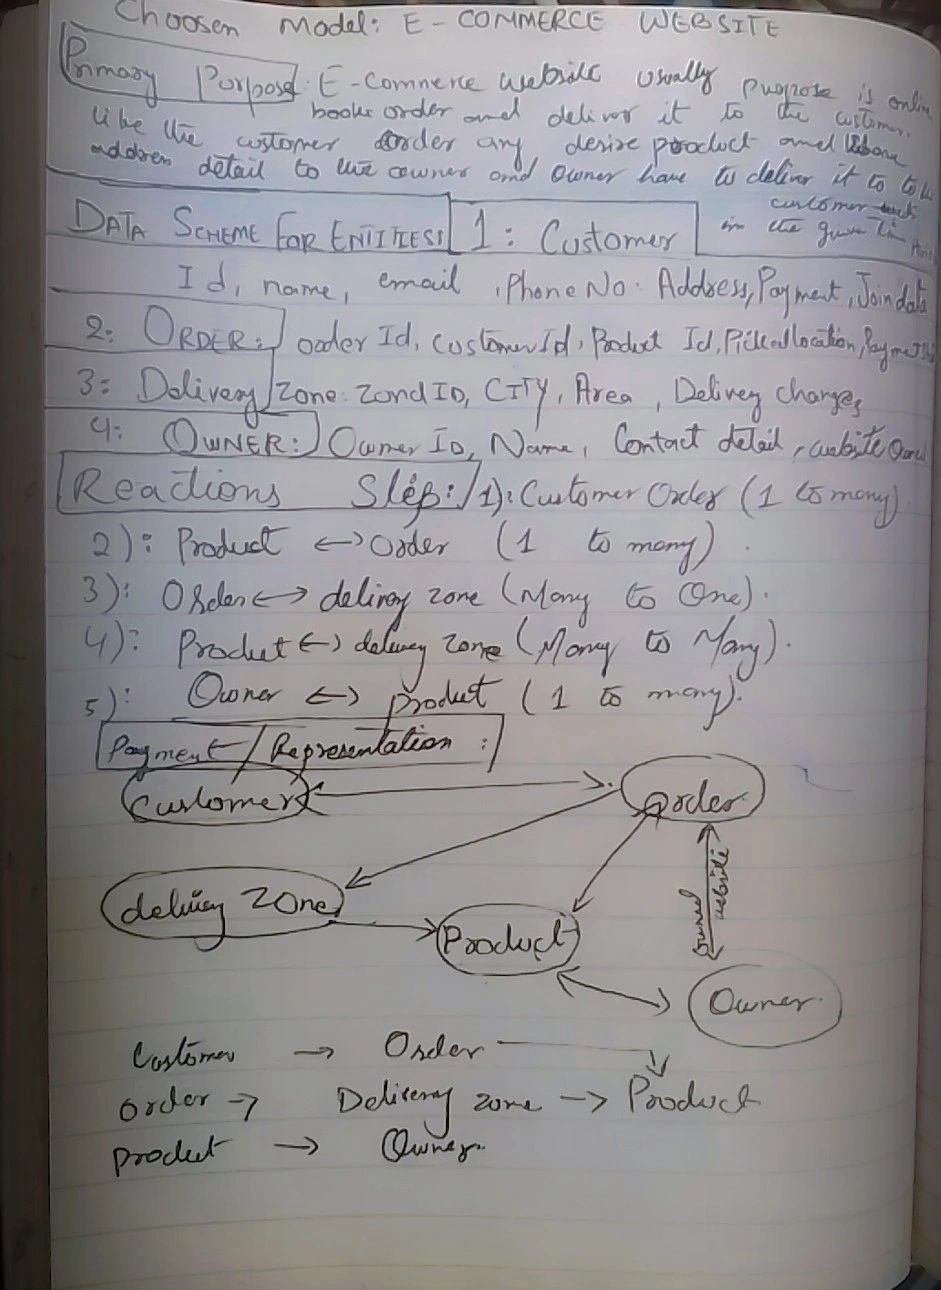 Choosen Model: E - COMMERCE WEBSITE
Primary Porpose: E-Commerce website usually purpose is online
booke order and deliver it to the customer.
like the customer order any desire product and
address detail to the owner and Owner have to deliver it to
customer
in the given
DATA SCHEME FOR ENTITIESS 1: Customer
Id, name, email, Phone No. Address, Payment, Join data
2: ORDER: order Id, customer Id, Product Id, location, Payment
3: Delivery Zone: Zond ID, CITY, Area, Delivey charges
4: OWNER: Owner ID, Name, Contact detail, website
Reactions Step: 1): Customer Order (1 to many).
2): Product ↔ Order (1 to many).
3): Order ↔ delivry zone (Many to One).
4): Product ↔ delivey zone (Many to Many).
5): Owner ↔ product (1 to many).
Payment / Representation :
Customer Order
owned website
delivey zone
Product
Owner.
Customer → Order
Order → Delivery zone → Product
product → Owner.